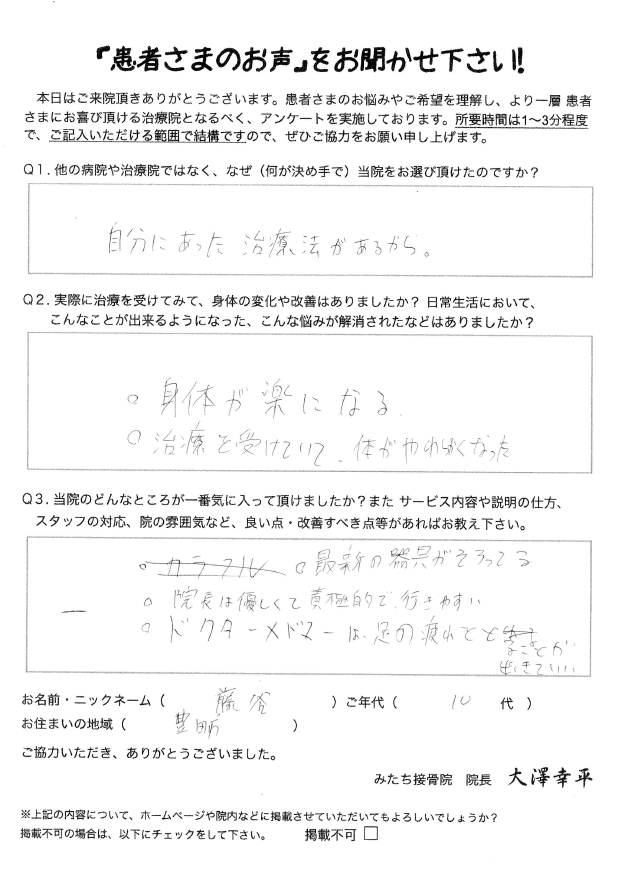 「患者さまのお声」をお聞かせ下さい!
本日はご来院頂きありがとうございます。患者さまのお悩みやご希望を理解し、より一層 患者
さまにお喜び頂ける治療院となるべく、アンケートを実施しております。所要時間は1〜3分程度
で、ご記入いただける範囲で結構ですので、ぜひご協力をお願い申し上げます。
Q1. 他の病院や治療院ではなく、なぜ(何が決め手で)当院をお選び頂けたのですか?
自分にあった 治療法があるから。
Q2. 実際に治療を受けてみて、身体の変化や改善はありましたか? 日常生活において、
こんなことが出来るようになった、こんな悩みが解消されたなどはありましたか?
○ 身体が楽になる
○ 治療を受けていて、体がやわらかくなった
Q3. 当院のどんなところが一番気に入って頂けましたか?また サービス内容や説明の仕方、
スタッフの対応、院の雰囲気など、良い点・改善すべき点等があればお教え下さい。
○ カラフル ○ 最新の器具がそろってる
○ 院長は優しくて積極的で行きやすい
○ ドクターメドマーは、足の疲れとと
ことが
できていい
お名前・ニックネーム( 藤谷 )ご年代( 10 代 )
お住まいの地域( 豊明 )
ご協力いただき、ありがとうございました。
みたち接骨院 院長 大澤幸平
※上記の内容について、ホームページや院内などに掲載させていただいてもよろしいでしょうか?
掲載不可の場合は、以下にチェックをして下さい。 掲載不可 □